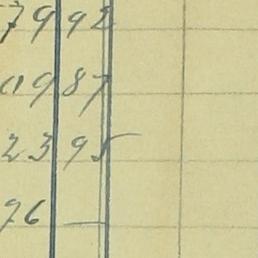 7992
01987
2395
76 —